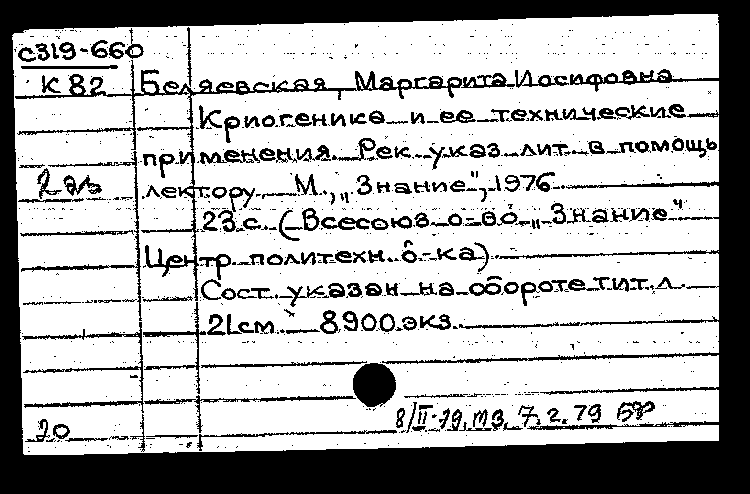 С319-660
К 82 Беляевская, Маргарита Иосифовна
Криогеника и ее технические
применения. Рек. указ. лит. в помощь
2 эк лектору. М., „Знание", 1976.
23 с. (Всесоюз. о-во „Знание"
Центр. политехн. б-ка)
Сост. указан на обороте тит. л.
21 см. 8900 экз.
20 8/II-79. тз. 7.2.79